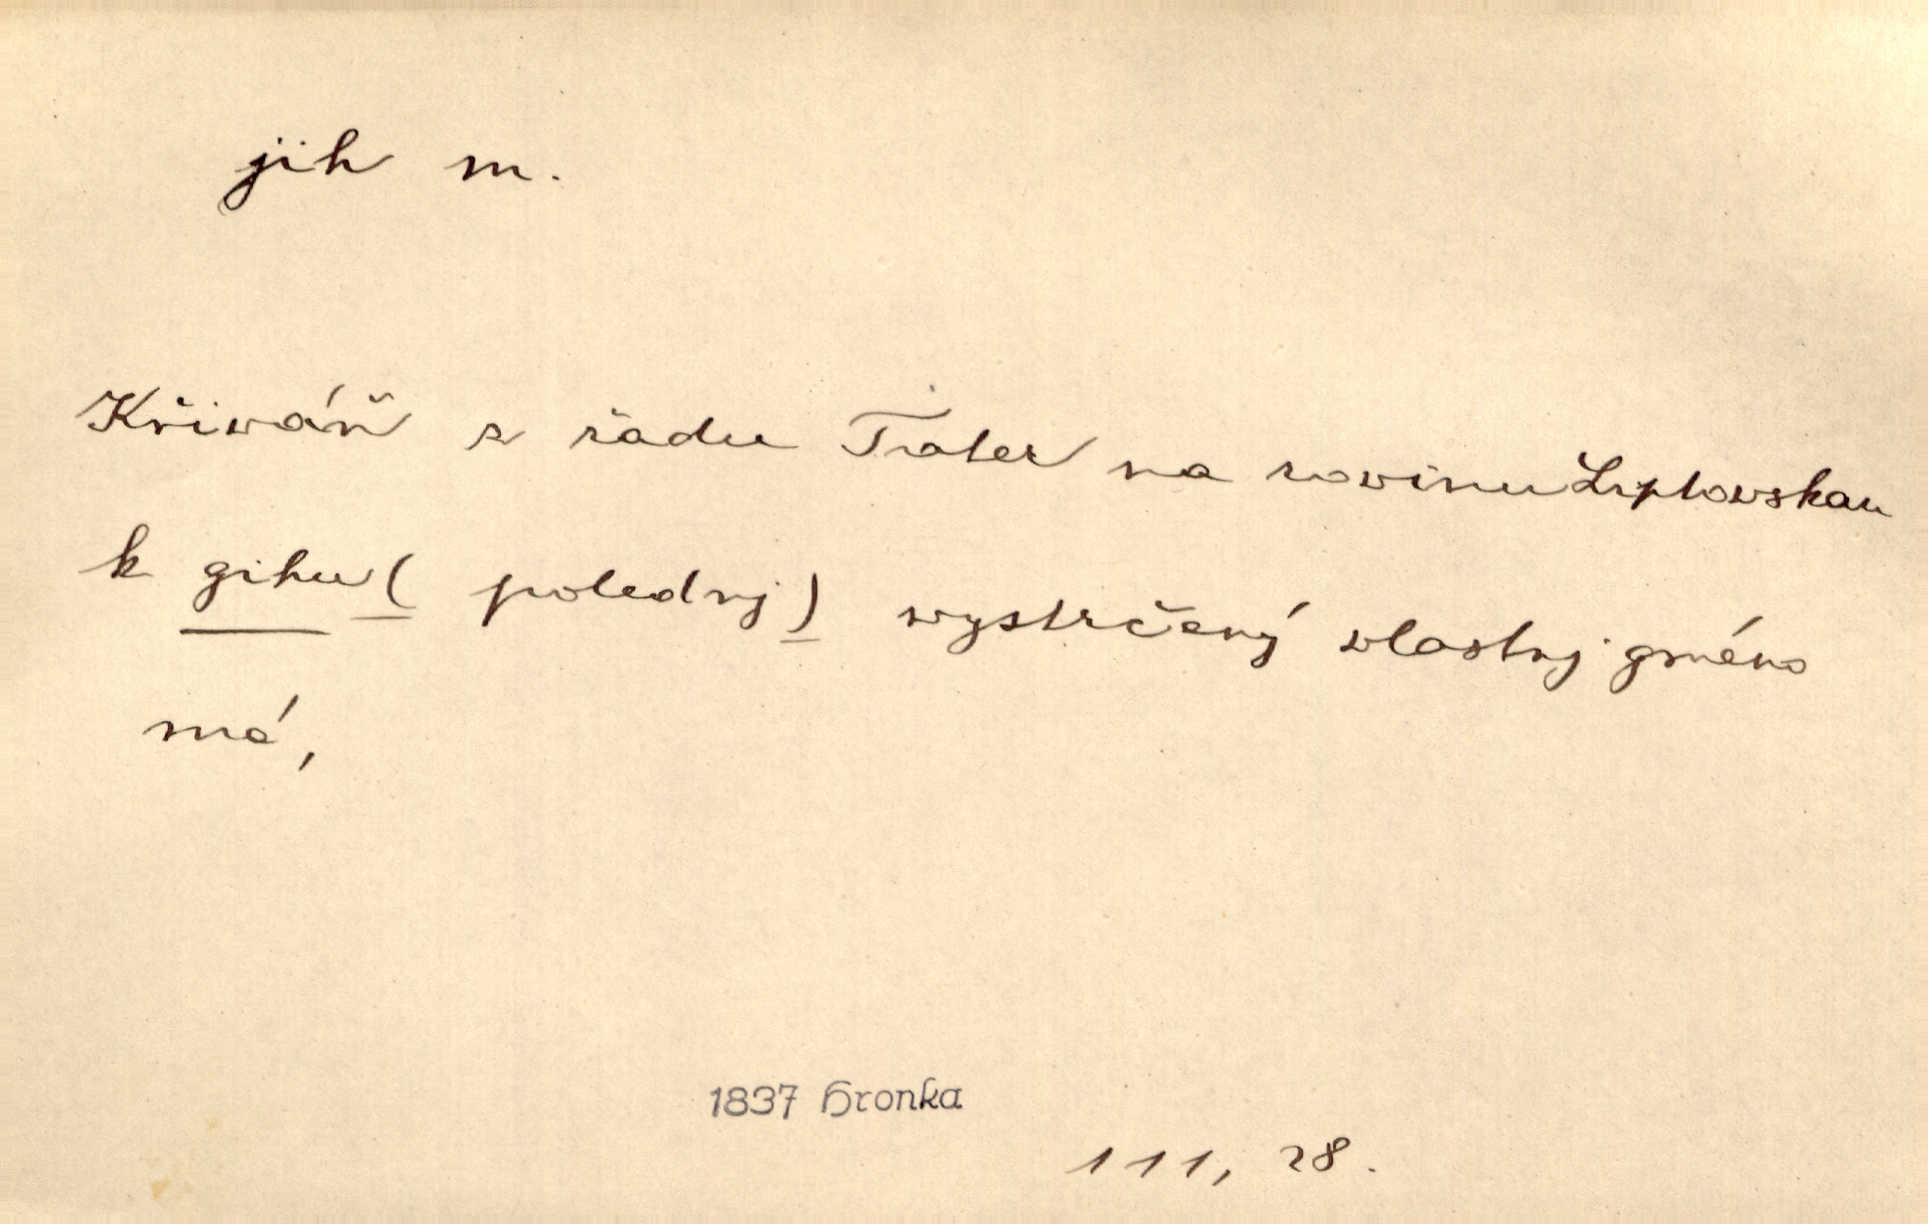 jih m.
Křiváň z řadu Tater na rovinu Liptowskau
k gihu (polednj) wystrčený vlastnj gméno
má,
1837 Hronka
111, 28.